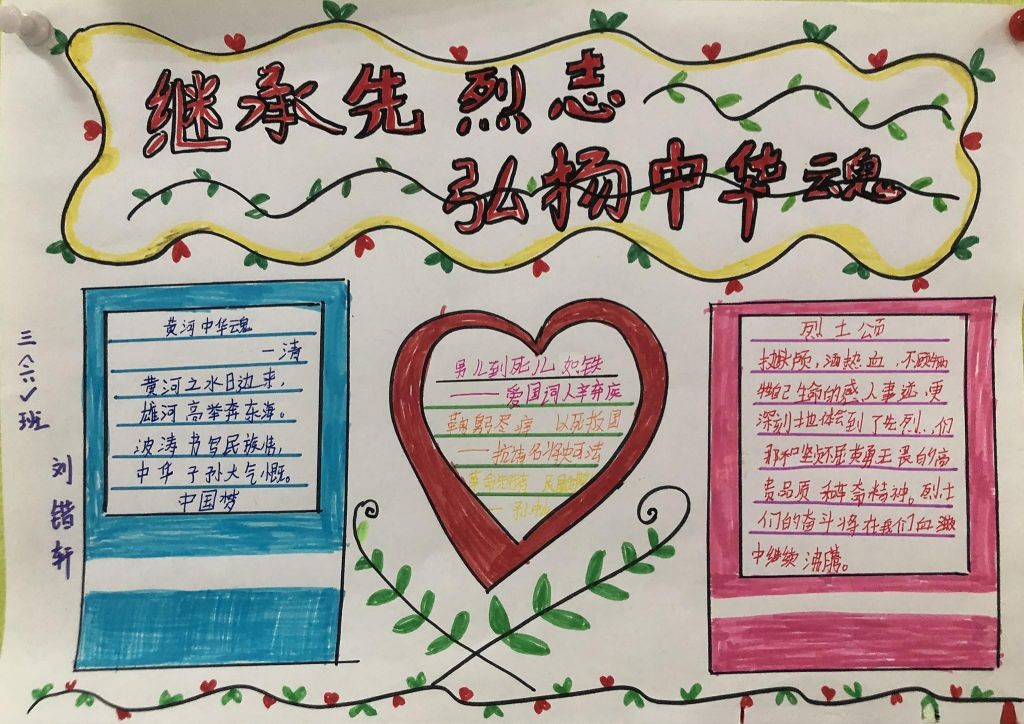 继承先烈志
弘扬中华魂
三〈六〉班
刘锴轩
黄河中华魂
—清
黄河之水日边来，
雄河高举奔东海。
波涛书写民族情，
中华子孙大气慨。
中国梦
男儿到死心如铁
——爱国词人辛弃疾
鞠躬尽瘁 以死报国
——抗清名将史可法
烈士颂
抛头颅，洒热血，不顾牺
牲自己生命的感人事迹，更
深刻地体会到了先烈们
那种坚忍不屈英勇无畏的高
贵品质和革命精神。烈士
们的奋斗将在我们血液
中继续沸腾。